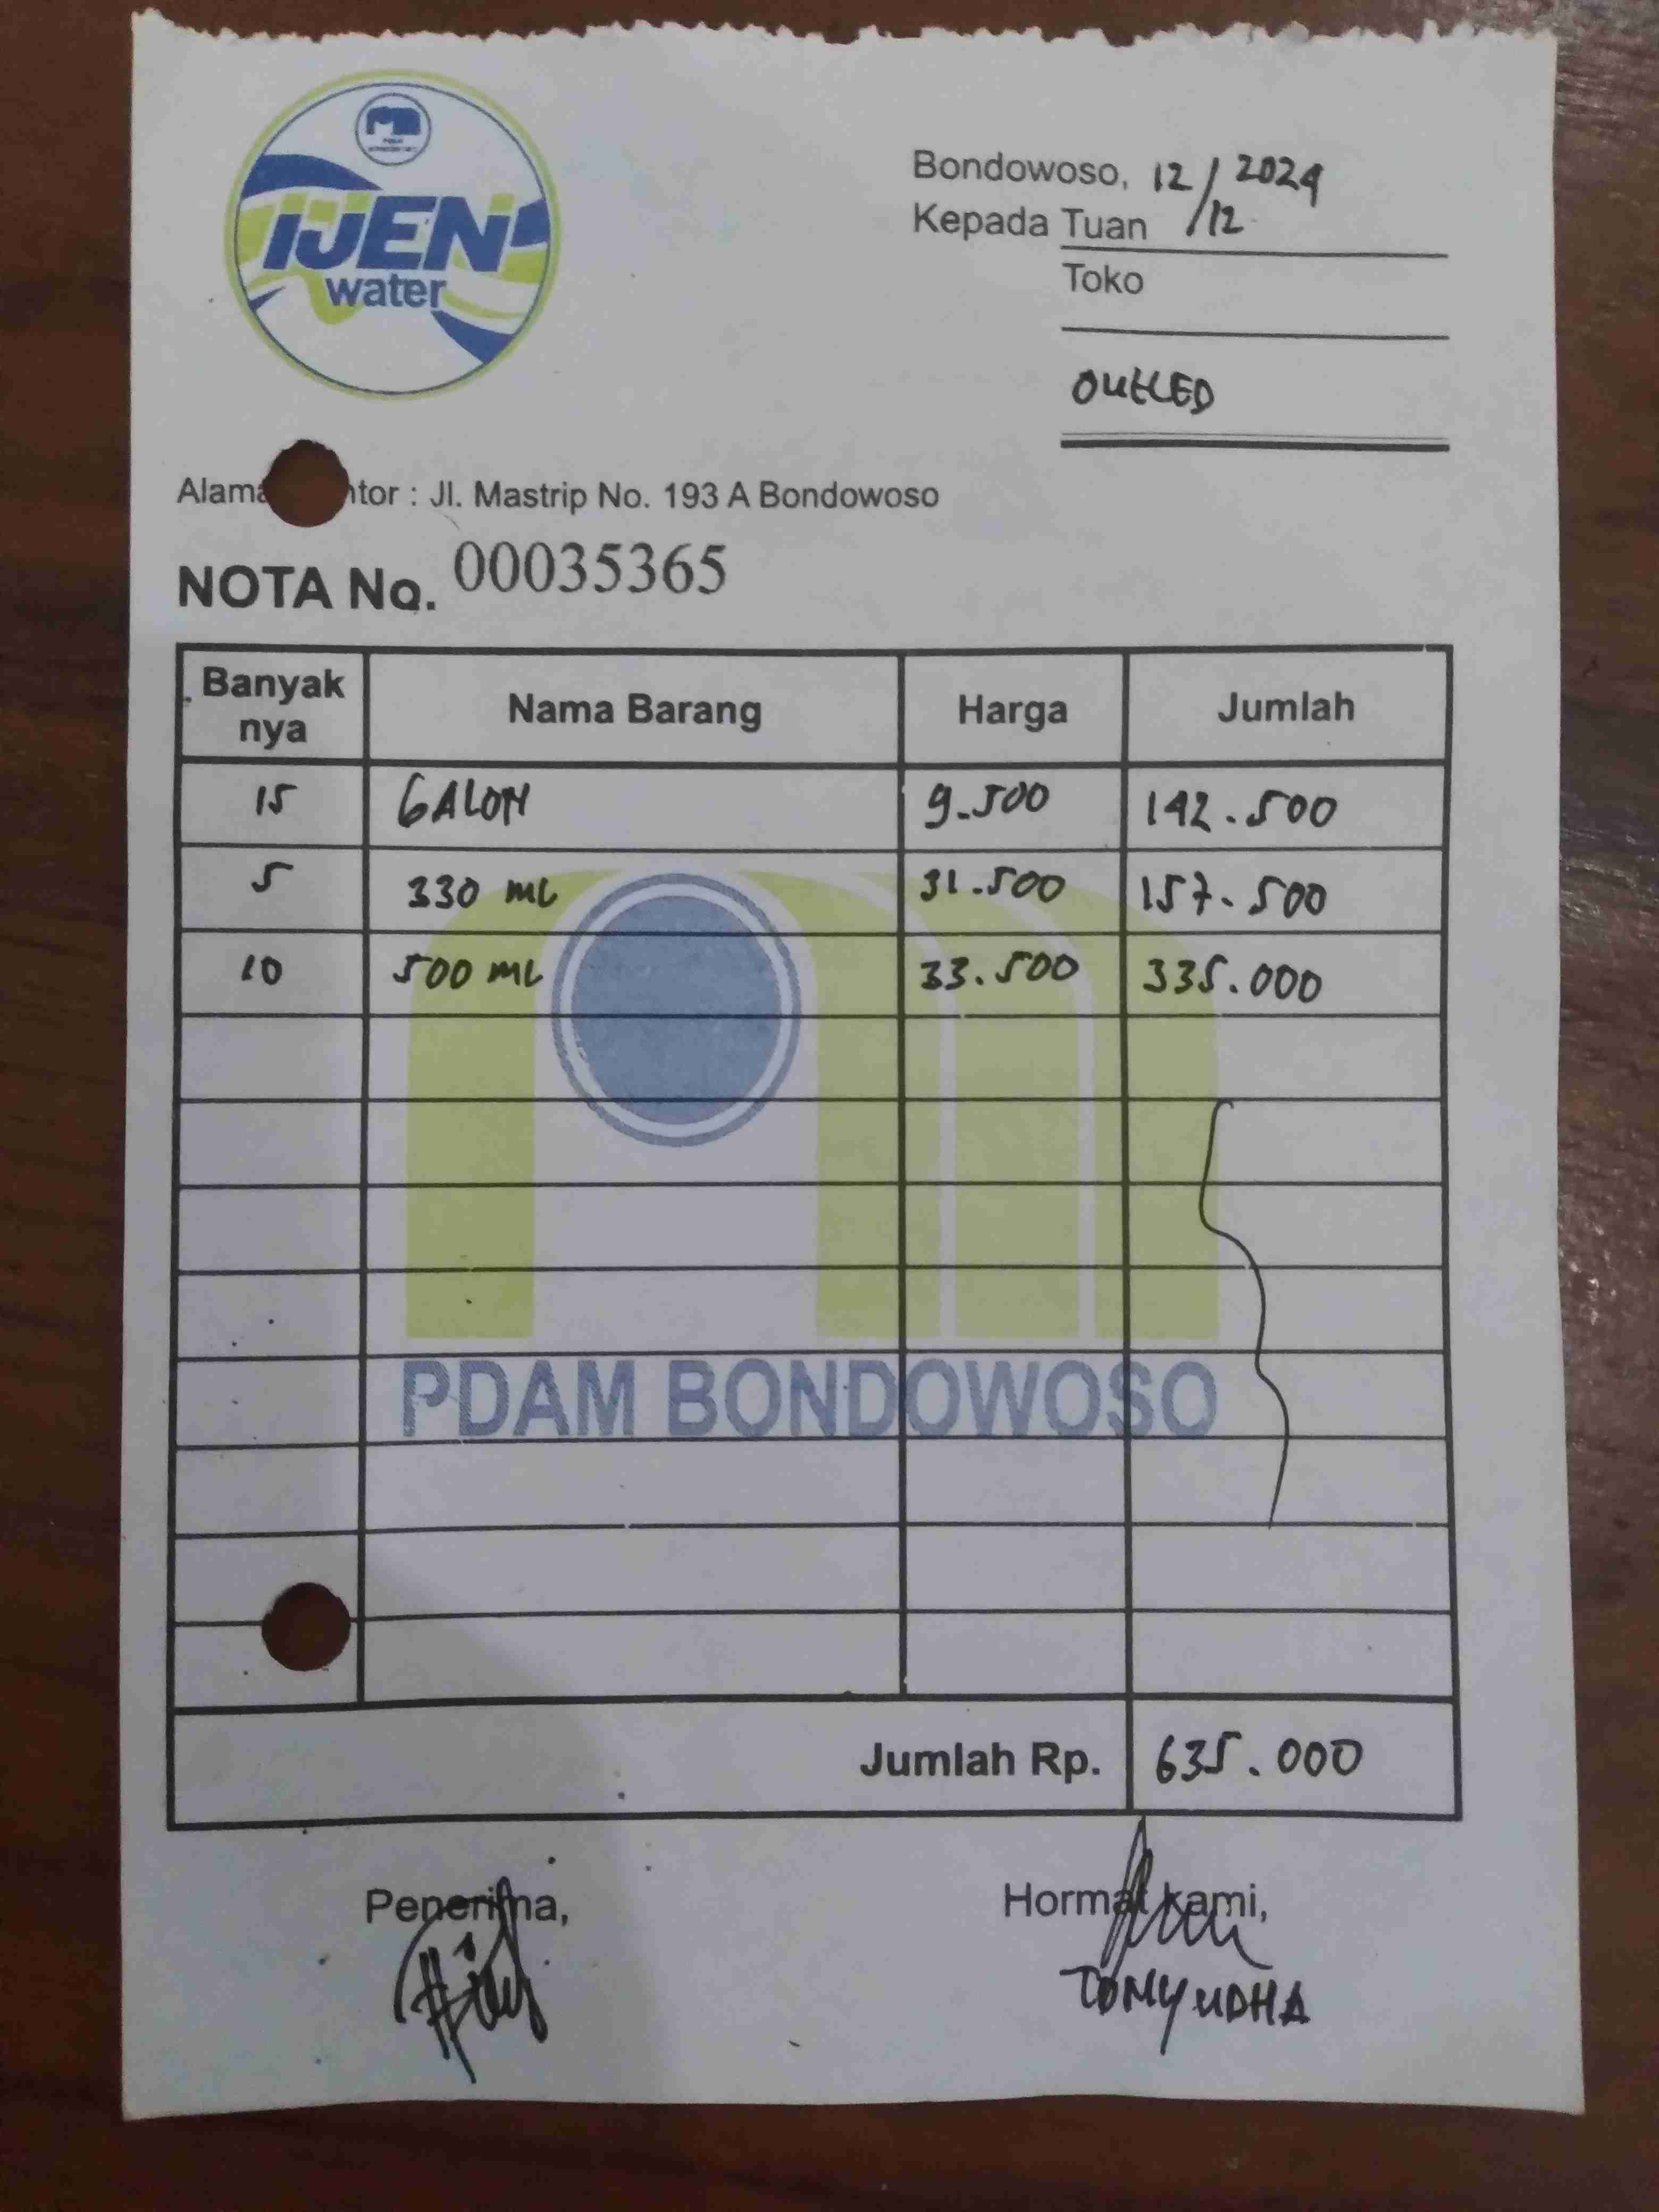 IJEN
water
Bondowoso, 12/12 2024
Kepada Tuan
Toko
OUTLED
: Jl. Mastrip No. 193 A Bondowoso
NOTA No. 00035365
Banyak nya Nama Barang Harga Jumlah
15 GALON 9.500 142.500
5 330 ML 31.500 157.500
10 500 ML 33.500 335.000
PDAM BONDOWOSO
Jumlah Rp. 635.000
Penerima, Hormat kami,
TOMY UDHA